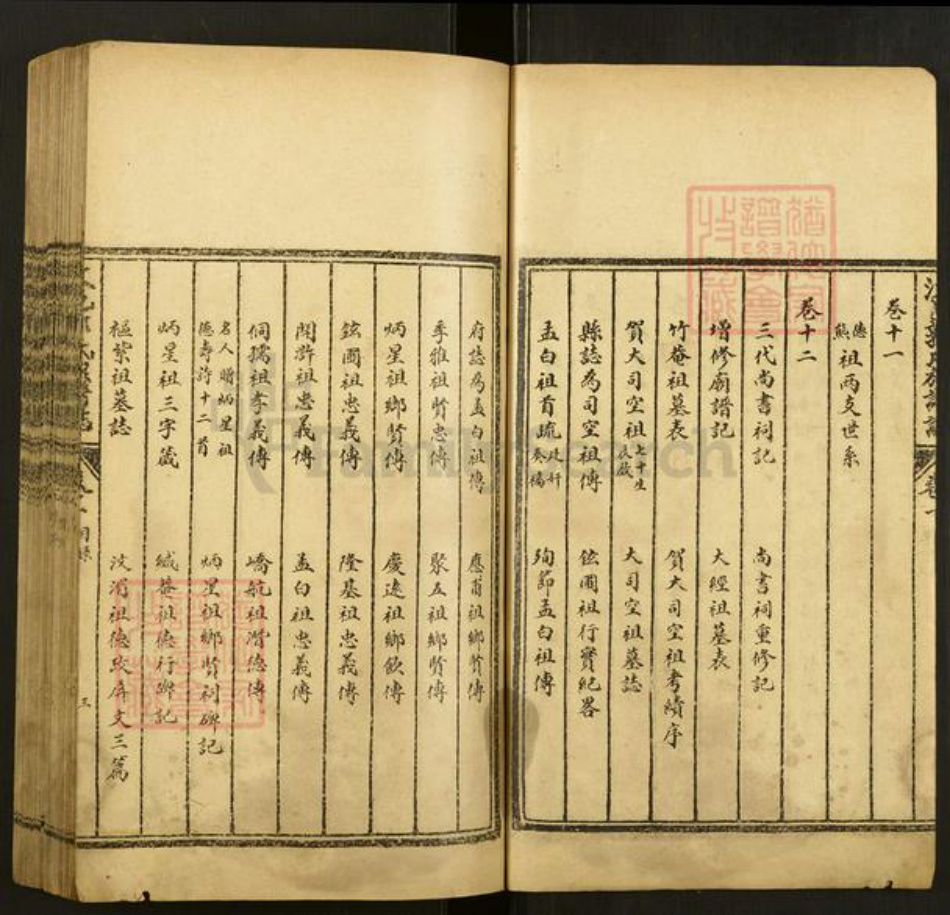 卷十一
德熊祖兩支世系
卷十二
三代尚書祠記 尚書祠重修記
增修廟譜記 大經祖墓表
竹菴祖墓表 賀大司空祖考績序
賀大司空祖七十生 大司空祖墓誌
縣誌為司空祖傳 鉉圃祖行實紀畧
孟白祖首疏廷奸奏稿 殉節孟白祖傳
府誌為孟白祖傳 應甯祖鄉賢傳
季雅祖賢忠傳 聚五祖鄉賢傳
炳星祖鄉賢傳 慶遠祖鄉飲傳
鉉圃祖忠義傳 隆基祖忠義傳
闇祖忠義傳 孟白祖忠義傳
侗孺祖孝義傳 嶠航祖潛德傳
名人贈炳星祖德壽詩十二首 炳星祖鄉賢祠碑記
炳星祖三字箴 緘菴祖德行碑記
樞紫祖墓誌 汶濱祖德政屏文三篇
三